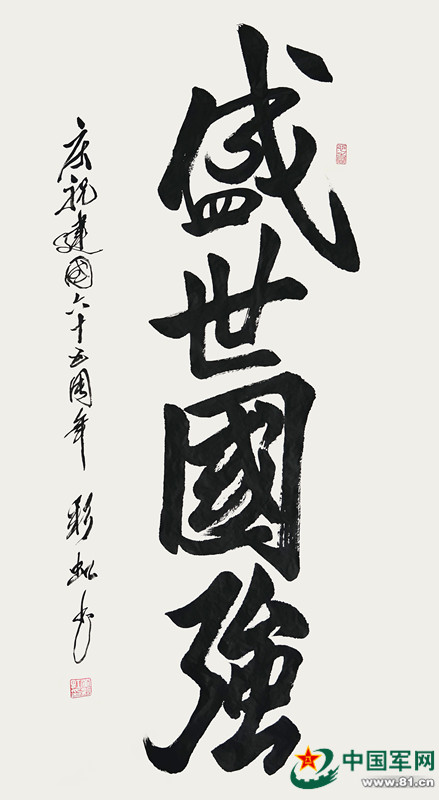 盛世國強
庆祝建國六十五周年
彩虹书
中国军网
www.81.cn